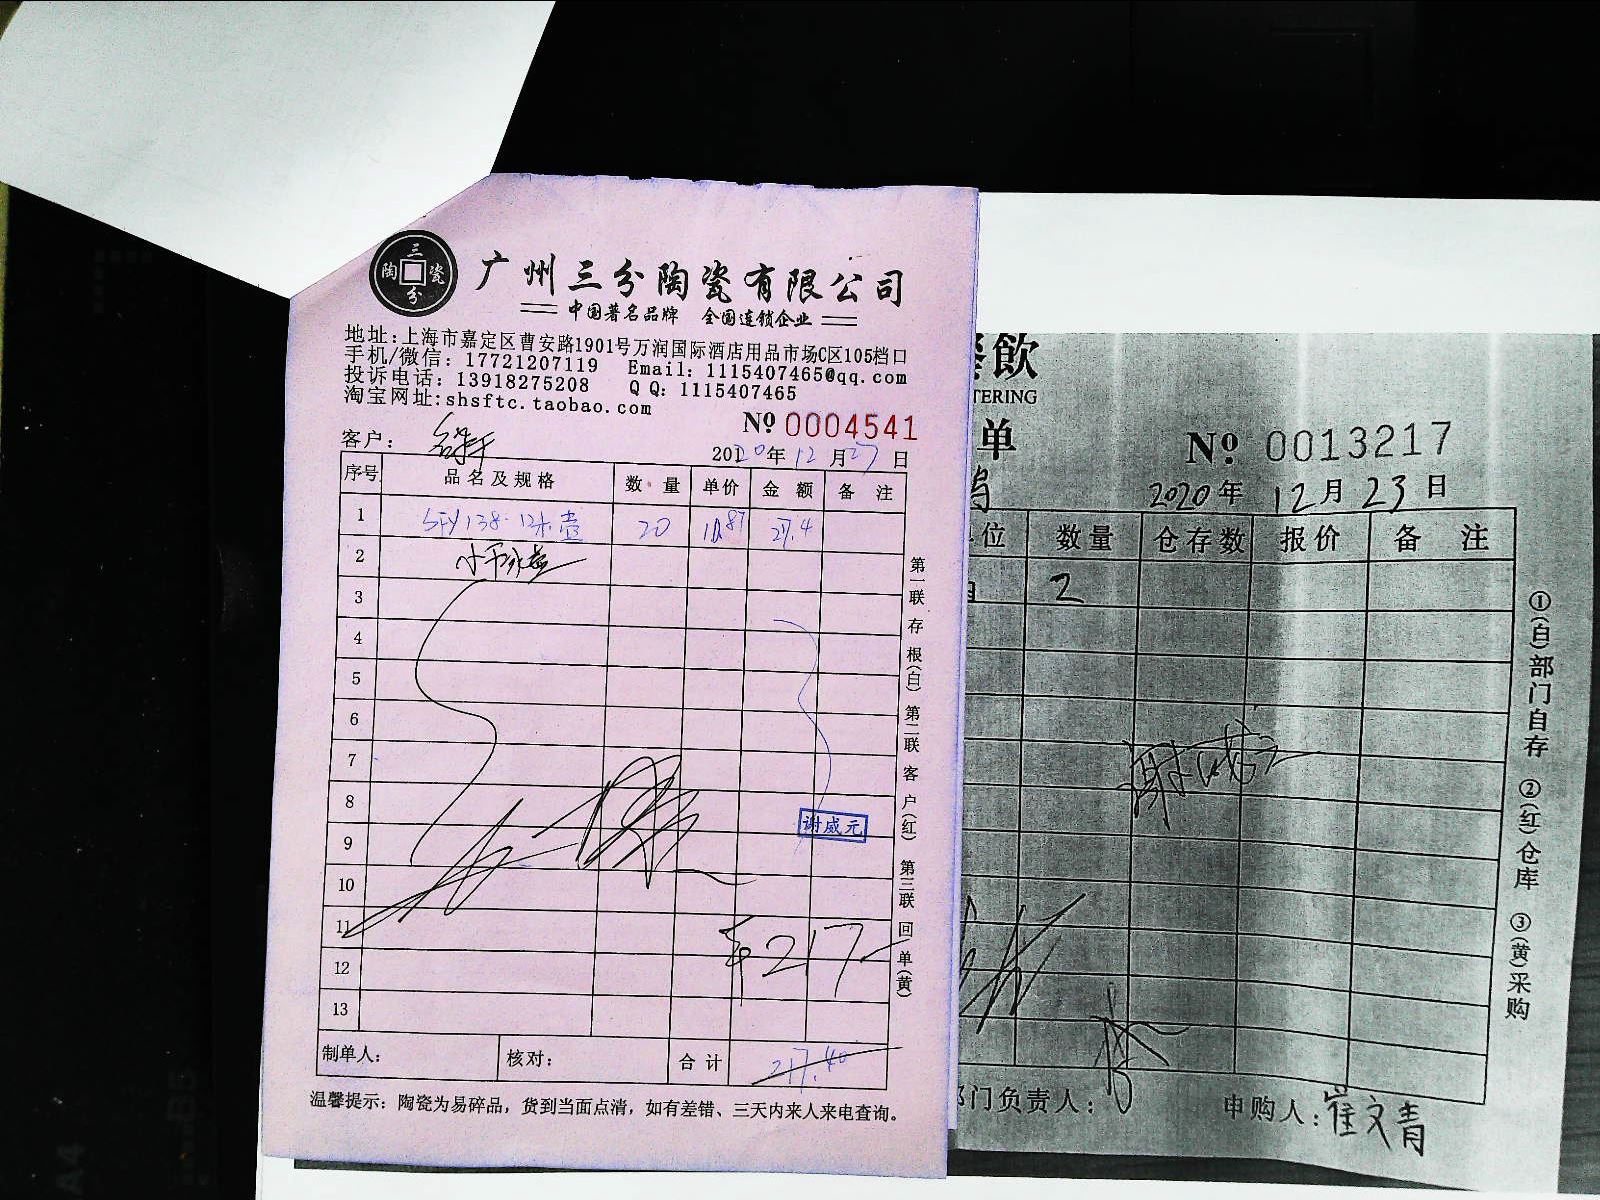 三
陶 瓷
分
广州三分陶瓷有限公司
中国著名品牌 全国连锁企业
地址:上海市嘉定区曹安路1901号万润国际酒店用品市场C区105档口
手机/微信: 17721207119 Email: 1115407465@qq.com
投诉电话: 13918275208 QQ: 1115407465
淘宝网址:shsftc.taobao.com
№ 0004541
客户:
2020年12月27日
序号 品名及规格 数量 单价 金额 备注
1 20 10.87
2
3
4
5
6
7
8
谢威元
9
10
11 217-
12
13
制单人: 核对: 合计 217.40
温馨提示: 陶瓷为易碎品, 货到当面点清, 如有差错、三天内来人来电查询。
第一联 存根(白) 第二联 客户(红) 第三联 回单(黄)
飲
TERING
单
№ 0013217
2020年12月23日
位 数量 仓存数 报价 备注
2
部门负责人: 申购人: 崔文青
①(白)部门自存 ②(红)仓库 ③(黄)采购
A4
B5